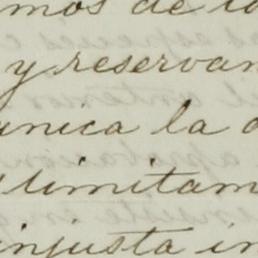 mos de la
y reservan
anica la
limitam
injusta in